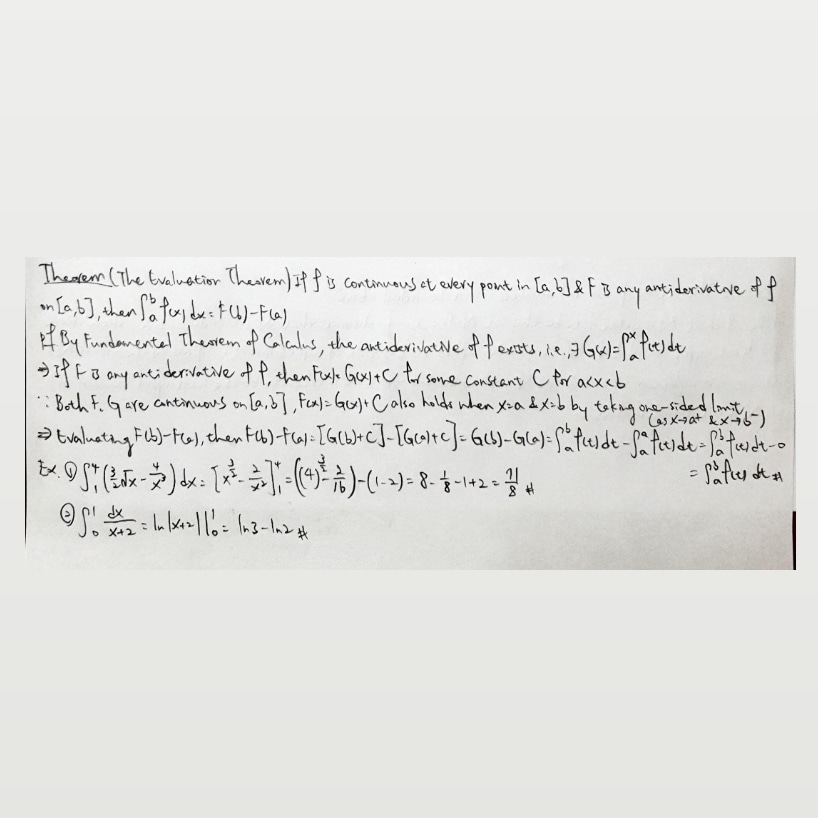 Theorem (The Evaluation Theorem) If f is continuous at every point in [a,b] & F is any antiderivative of f
on [a,b], then ∫ₐᵇ f(x) dx = F(b)-F(a)
pf By Fundamental Theorem of Calculus, the antiderivative of f exists, i.e., ∃ G(x)=∫ₐˣ f(t) dt
⇒ If F is any antiderivative of f, then F(x)=G(x)+C for some constant C for a<x<b
∵ Both F, G are continuous on [a,b], F(x)=G(x)+C also holds when x=a & x=b by taking one-sided limit
(as x→a⁺ & x→b⁻)
⇒ Evaluating F(b)-F(a), then F(b)-F(a)=[G(b)+C]-[G(a)+C]=G(b)-G(a)=∫ₐᵇ f(t)dt-∫ₐᵃ f(t)dt=∫ₐᵇ f(t)dt-0
=∫ₐᵇ f(t) dt #
Ex. ① ∫₁⁴ (3/2 √x - 4/x³) dx = [x^(3/2) - 2/x²]₁⁴ = ((4)^(3/2) - 2/16)-(1-2) = 8-1/8-1+2 = 71/8 #
② ∫₀¹ dx/(x+2) = ln|x+2| |₀¹ = ln3-ln2 #